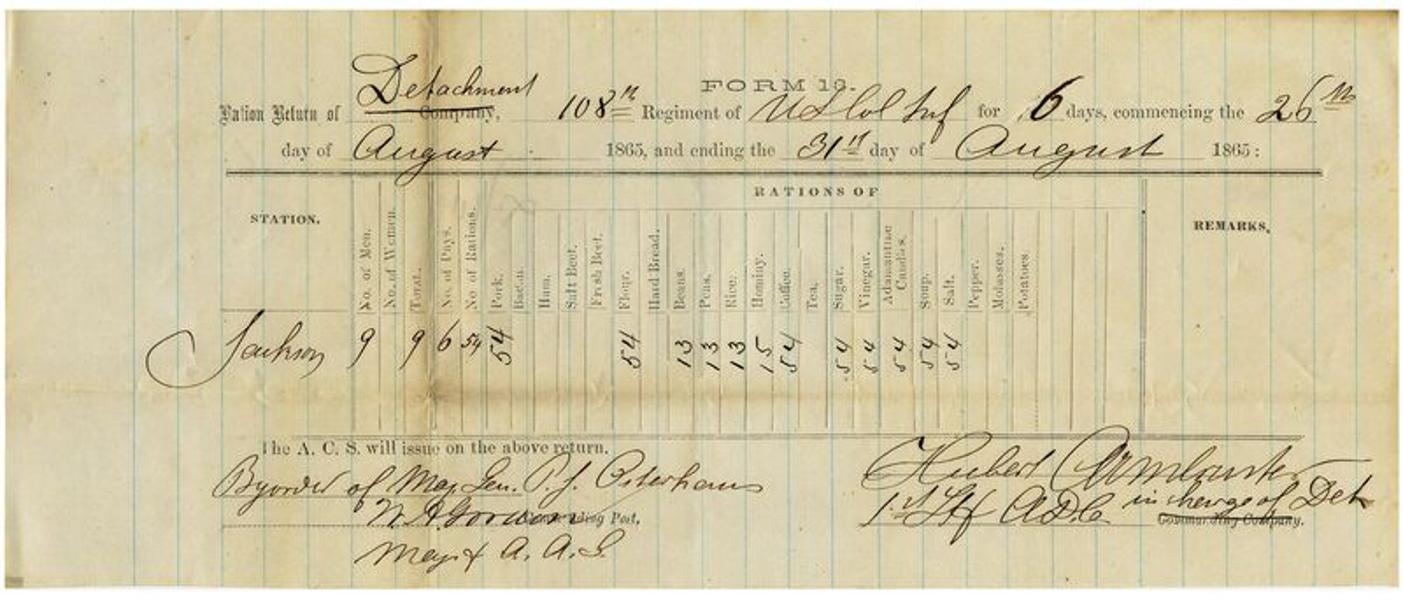 FORM 13.
Ration Return of Detachment Company, 108th Regiment of US Col Inf for 6 days, commencing the 26th
day of August 1865, and ending the 31st day of August 1865:
RATIONS OF
STATION. No. of Men. No. of Women. Total. No. of Days. No. of Rations. Pork. Bacon. Ham. Salt Beef. Fresh Beef. Flour. Hard Bread. Beans. Peas. Rice. Hominy. Coffee. Tea. Sugar. Vinegar. Adamantine Candles. Soap. Salt. Pepper. Molasses. Potatoes. REMARKS.
Jackson 9 9 6 54 54 54 13 13 13 15 54 54 54 54 54 54
The A. C. S. will issue on the above return.
By order of Maj. Gen. P. J. Osterhaus
W. A. Gordon Commanding Post.
Maj & A. A. G.
Hubert Armbruster
1st Lt & A.D.C in charge of Det
Commanding Company.